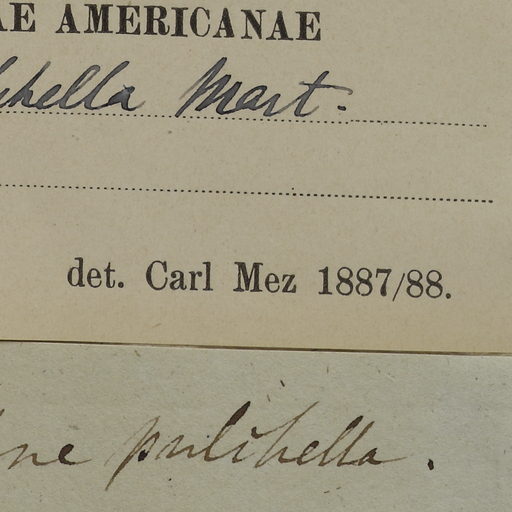 AE AMERICANAE
chella Mart.
det. Carl Mez 1887/88.
ne pulchella.